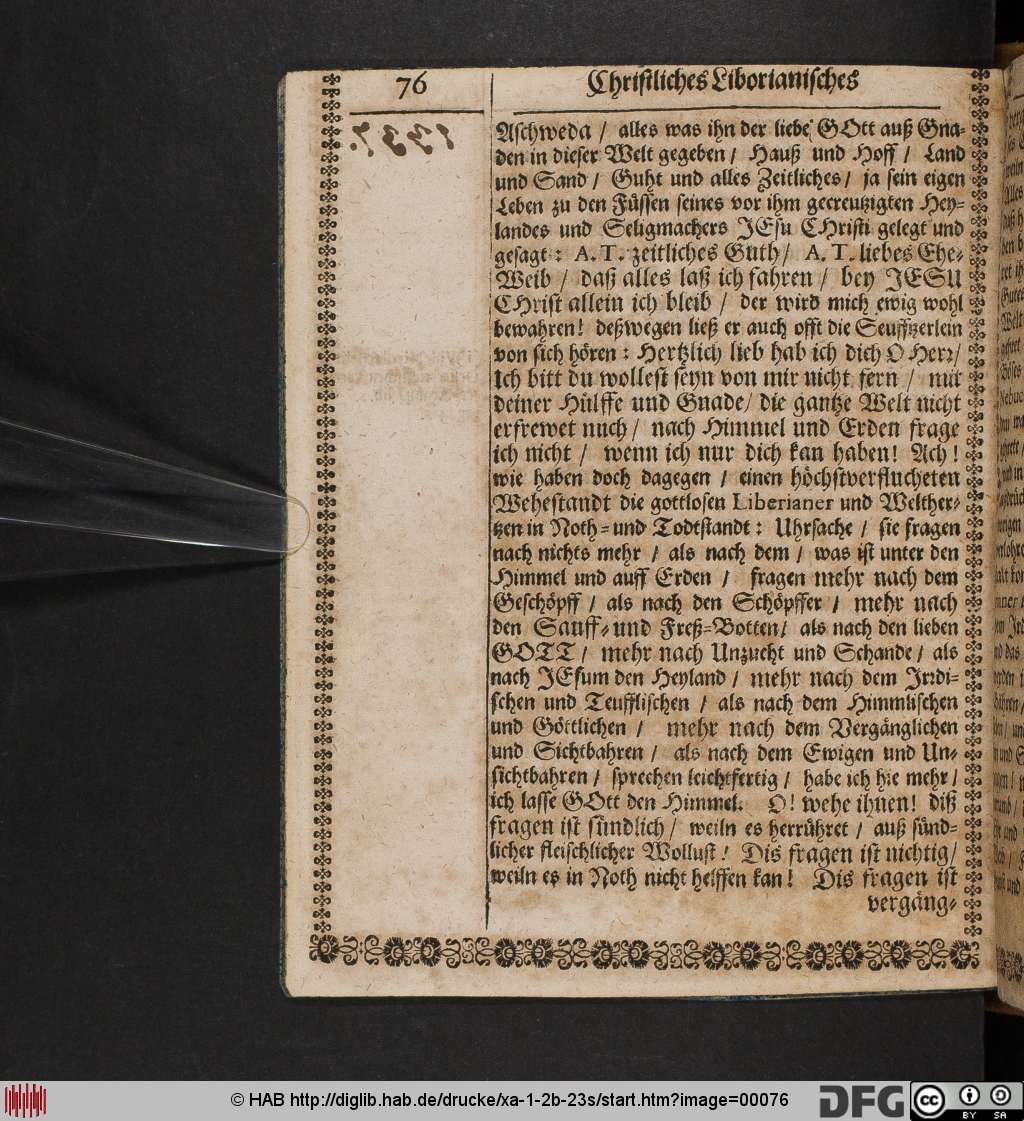 76
Christliches Liborianisches
Aschweda / alles was ihn der liebe GOtt auß Gna-
den in dieser Welt gegeben / Hauß und Hoff / Land
und Sand / Guht und alles Zeitliches / ja sein eigen
Leben zu den Füssen seines vor ihm gecreutzigten Hey-
landes und Seligmachers JEsu CHristi gelegt und
gesagt: A. T. zeitliches Guth / A. T. liebes Ehe-
Weib / daß alles laß ich fahren / bey JESU
CHrist allein ich bleib / der wird mich ewig wohl
bewahren! deßwegen ließ er auch offt die Seufftzerlein
von sich hören: Hertzlich lieb hab ich dich O Herr /
Ich bitt du wollest seyn von mir nicht fern / mit
deiner Hülffe und Gnade / die gantze Welt nicht
erfrewet mich / nach Himmel und Erden frage
ich nicht / wenn ich nur dich kan haben! Ach!
wie haben doch dagegen / einen höchstverflucheten
Wehestandt die gottlosen Liberianer und Welther-
tzen in Noth- und Todtstandt: Uhrsache / sie fragen
nach nichts mehr / als nach dem / was ist unter den
Himmel und auff Erden / fragen mehr nach dem
Geschöpff / als nach den Schöpffer / mehr nach
den Sauff- und Freß-Botten / als nach den lieben
GOTT / mehr nach Unzucht und Schande / als
nach JEsum den Heyland / mehr nach dem Irrdi-
schen und Teufflischen / als nach dem Himmlischen
und Göttlichen / mehr nach dem Vergänglichen
und Sichtbahren / als nach dem Ewigen und Un-
sichtbahren / sprechen leichtfertig / habe ich hie mehr /
ich lasse GOtt den Himmel. O! wehe ihnen! diß
fragen ist sündlich / weiln es herrühret / auß sünd-
licher fleischlicher Wollust! Dis fragen ist nichtig /
weiln es in Noth nicht helffen kan! Dis fragen ist
vergäng-
© HAB http://diglib.hab.de/drucke/xa-1-2b-23s/start.htm?image=00076
DFG
cc
BY SA